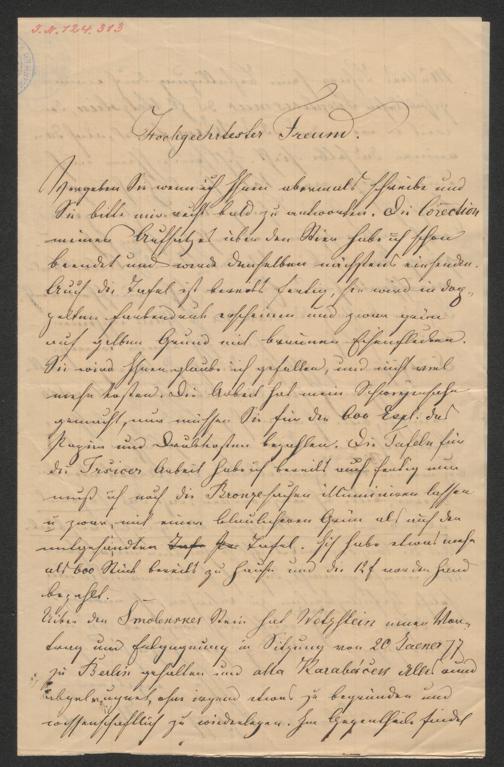 I.N. 124.313
Hochgeehrtester Freund.
Vergeben Sie wenn ich Ihnen abermals schreibe und
Sie bitte mir recht bald zu antworten. Die Corection
meines Aufsatzes über den Stein habe ich schon
beendet und werde denselben nächstens einsenden.
Auch die Tafel ist bereits fertig, sie wird in dop-
pelten Farbendruck erscheinen und zwar grün
auf gelben Grund mit braunen Eisenflecken.
Sie wird Ihnen glaube ich gefallen, und nicht viel
mehr kosten. Die Arbeit hat mein Schwiegersohn
gemacht, nur müssen Sie für die 600 Expl. das
Papier und Druckkosten bezahlen. Die Tafeln für
die Arbeit habe ich bereits auch fertig nur
muß ich noch die Bronzesachen illuminiren lassen
u zwar mit einem blaulicheren Grün als auf der
mitgesandten Tafel. Ich habe etwas mehr
als 600 Stück bereits zu Hause und die 12 f worden Hand
bezahlt.
Über den Smolensker Stein hat Wetzstein einen Vor-
trag und Entgegnung in Sitzung von 20 Jaener 77
zu Berlin gehalten und alla Karabáceks Alles rund
abgeleugnet, ohne irgend etwas zu begründen und
wissenschaftlich zu wiederlegen. Im Gegentheile findet